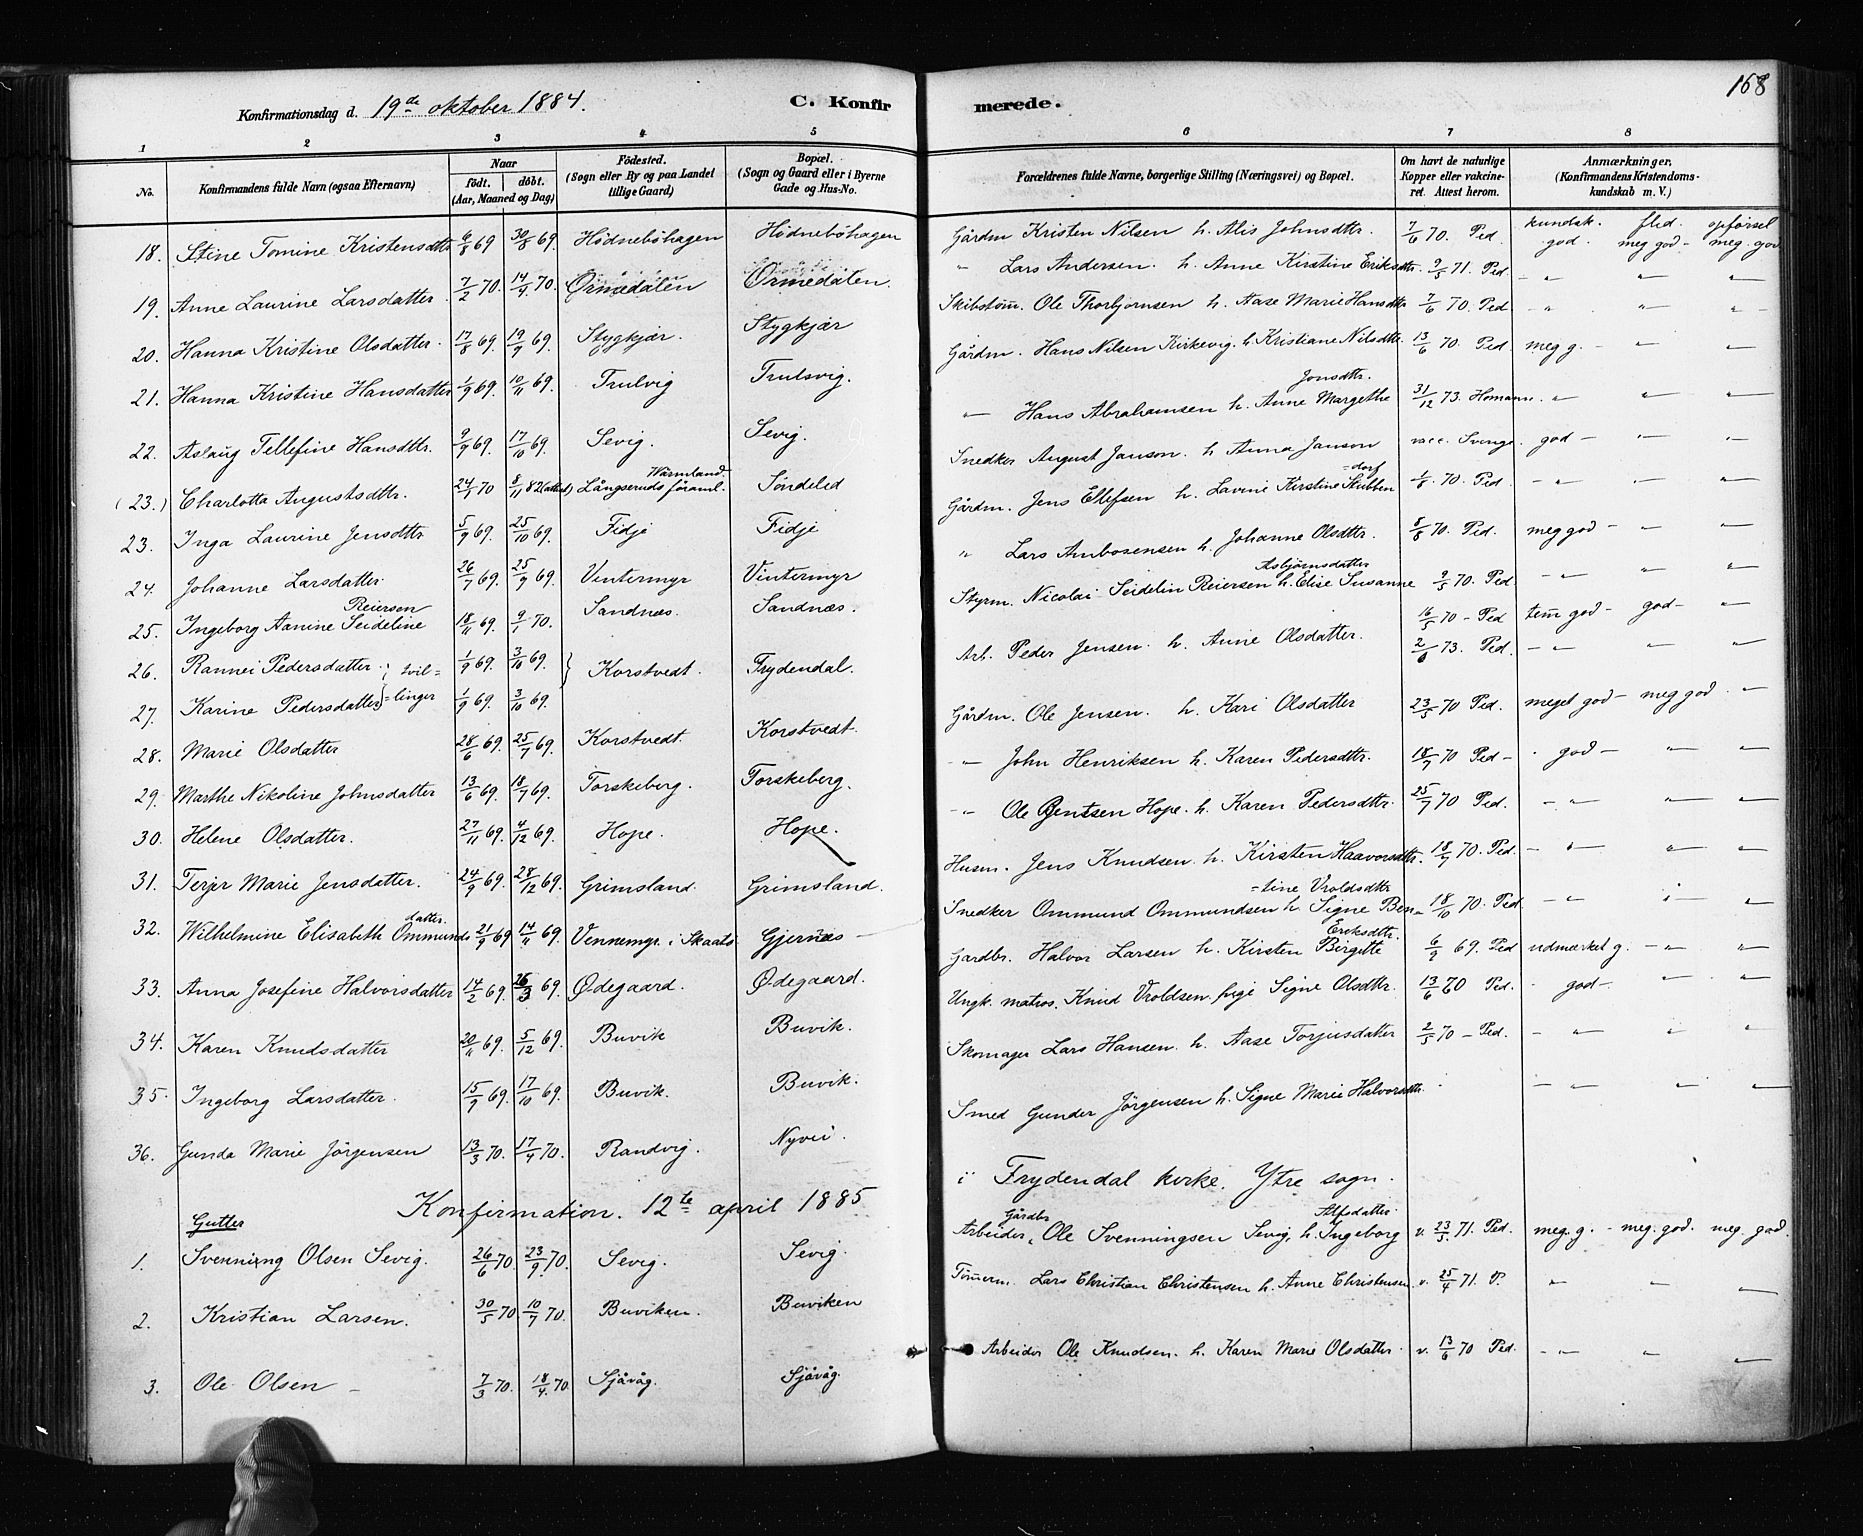 168
Konfirmationsdag d. 19de oktober 1884. C. Konfirmerede.
1 2 3 4 5 6 7 8
No. Konfirmandens fulde Navn (ogsaa Efternavn) Naar født. døbt. (Aar, Maaned og Dag) Fødested. (Sogn eller By og paa Landet tillige Gaard) Bopæl. (Sogn og Gaard eller i Byerne Gade og Hus-No. Forældrenes fulde Navne, borgerlige Stilling (Næringsvei) og Bopæl. Om havt de naturlige Kopper eller vakcineret. Attest herom. Anmærkninger. (Konfirmandens Kristendomskundskab m. V.)
kundsk. flid. opførsel
18. Stine Tomine Kristensdttr 6/8 69 30/8 69. Hødnebøhagen Hødnebøhagen Gårdm Kristen Nilsen h. Alis Johnsdttr. 7/6 70. Ped. god. meg god - meg. god
19. Anne Laurine Larsdatter 7/2 70. 14/4 70. Ørmedalen Ørmedalen. " Lars Andersen. h. Anne Kirstine Eriksdttr. 9/5 71. Ped - " " "
20. Hanna Kristine Olsdatter. 17/8 69. 19/9 69. Stygkjær. Stygkjær Skibstøm. Ole Thorbjørnsen h. Aase Marie Hansdttr 7/6 70. Ped. - " " " -
21. Hanna Kristine Hansdatter 1/9 69. 10/11 69. Trulvig Trulsvig. Gårdm. Hans Nilsen Kirkevig. h. Kristiane Nilsdttr. 13/6 70. Ped. meg g. - " "
22. Aslaug Tellefine Hansdttr. 9/9 69. 17/10 69. Sevig. Sevig. " Hans Abrahamsen h. Anne Margethe Jonsdttr. 31/12 73. Homann. " " "
(23.) Charlotta Augustsdttr. 24/1 70 8/11 82 (attest) Långseruds föraml. Wärmland Søndeled Snedker August Janson. h. Anna Janson vacc. Sverige. god - " "
23. Inga Laurine Jensdttr 5/9 69. 25/10 69. Fidje Fidje Gårdm. Jens Ellefsen h. Lavine Kirstine Skibben=dorf 1/8. 70. Ped. - " " "
24. Johanne Larsdatter. 26/7 69. 25/9 69. Vintermyr Vintermyr " Lars Ambosensen h. Johanne Olsdttr. 8/8 70. Ped. meg god - " "
25. Ingeborg Aanine Seideline Reiersen 18/11 69. 9/1 70. Sandnæs. Sandnæs. Styrm. Nicolai Seidelin Reiersen h. Elise Susanne Asbjørnsdatter 9/5 70. Ped. - " " "
26. Rannei Pedersdatter. } tvil= 1/9 69. 3/10 69. } Korstvedt. Frydendal. Arb. Peder Jensen. h. Anne Olsdatter. 16/5 70 - Ped tem god - god - "
27. Karine Pedersdatter } =linger 1/9 69. 3/10 69. 2/6 73. Ped. - " " "
28. Marie Olsdatter 28/6 69. 25/7 69. Korstvedt. Korstvedt. Gårdm. Ole Jensen. h. Kari Olsdatter 23/5 70 Ped. meget god - meg god. "
29. Marthe Nikoline Johnsdatter 13/6 69. 18/7 69. Torskeberg. Torskeberg. " John Henriksen h. Karen Pedersdttr. 18/7 70 Ped - god - " "
30. Helene Olsdatter. 27/11 69. 4/12 69. Hope. Hope. " Ole Bentsen Hope. h. Karen Pedersdttr. 25/7 70 Ped. - " " "
31. Terjer Marie Jensdatter. 24/9 69. 28/12 69. Grimsland. Grimsland. Husm. Jens Knudsen h. Kirsten Haavorsdttr. 18/7 70. Ped. - " " "
32. Wilhelmine Elisabeth Ommundsdatter. 21/9 69. 14/11 69. Vennemyr i Skaats. Gjernæs - Snedker Ommund Ommundsen h. Signe Ben=tine Vroldsdttr 18/10 70. Ped. - " " "
33. Anna Josefine Halvorsdatter 14/2 69. 26/3 69. Ødegaard. Ødegaard. Gardbr. Halvor Larsen h. Kirsten Birgitte Eriksdttr. 6/9 69. Ped udmærket g. - " "
34. Karen Knudsdatter 20/11 69. 5/12 69. Buvik Buvik. Ungk. matros. Knud Vroldsen pige Signe Olsdttr. 13/6 70 Ped. - god - " "
35. Ingeborg Larsdatter. 15/9 69. 17/10 69. Buvik. Buvik. Skomager Lars Hansen h. Aase Torjusdatter 2/5 70 - Ped. - " " "
36. Gunda Marie Jørgensen 13/3 70. 17/4 70. Randvig. Nyvei. Smed Gunder Jørgensen h. Signe Marie Halvorsdttr. - " " "
Konfirmation. 12te april 1885 i Frydendal kirke. Ytre sogn.
Gutter
1. Svenning Olsen Sevig. 26/6 70 23/9 70. Sevig. Sevig. Arbeider, Gårdbr Ole Svenningsen Sevig, h. Ingeborg Alfsdatter. v. 23/5. 71. Ped. meg. g. - meg. god. meg. god.
2. Kristian Larsen. 30/5 70. 10/7 70. Buviken. Buviken Tømerm. Lars Christian Christensen h. Anne Christensen v. 25/4 71. P. " " "
3. Ole Olsen - 7/3 70. 18/4. 70. Sjåvåg. Sjåvåg. Arbeider Ole Knudsen. h. Karen Marie Olsdatter. v. 13/6 70 Ped. - " " "